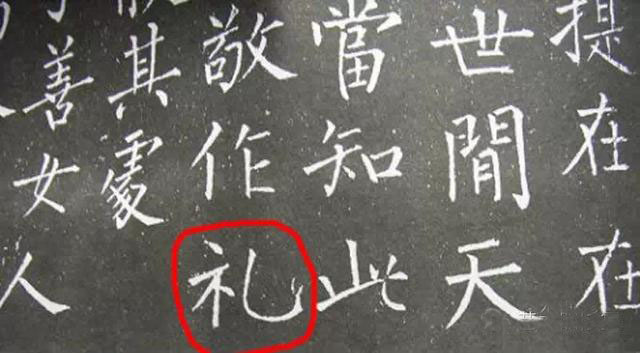 提在在
世閒天
當知此
敬作礼
其處
善女人